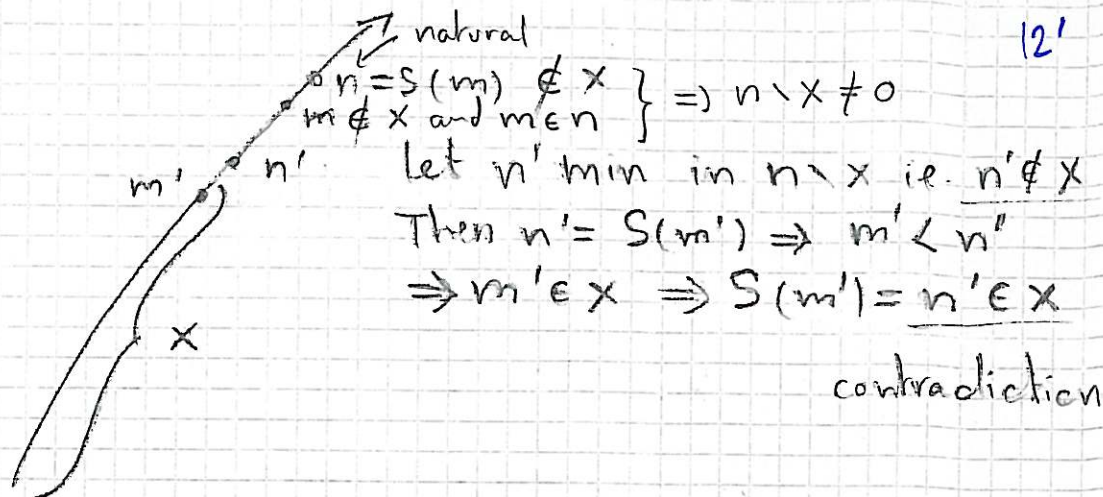 12'
natural
n = S(m) ∉ X
m ∉ X and m ∈ n } ⇒ n \ X ≠ 0
m' n' Let n' min in n \ X ie. n' ∉ X
Then n' = S(m') ⇒ m' < n'
⇒ m' ∈ X ⇒ S(m') = n' ∈ X
X
contradiction